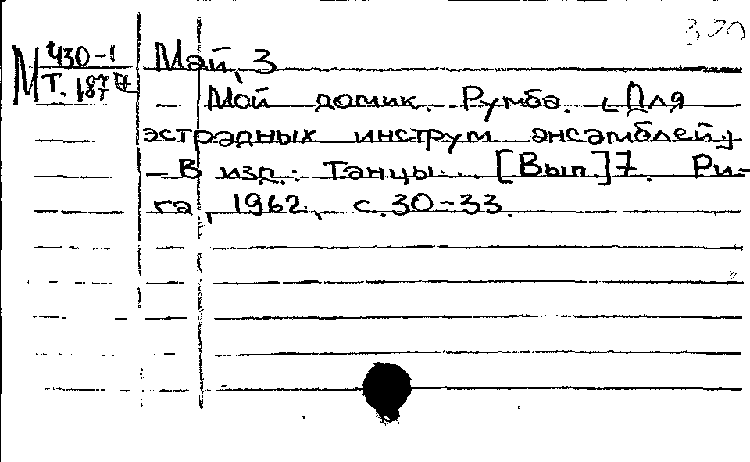 3 20
М 430-1
Т. 187
Май, З
Мой домик. Румба. [Для
эстрадных инструм ансамблей]
– В изд.: Танцы... [Вып.] 7. Ри-
га, 1962, с. 30-33.